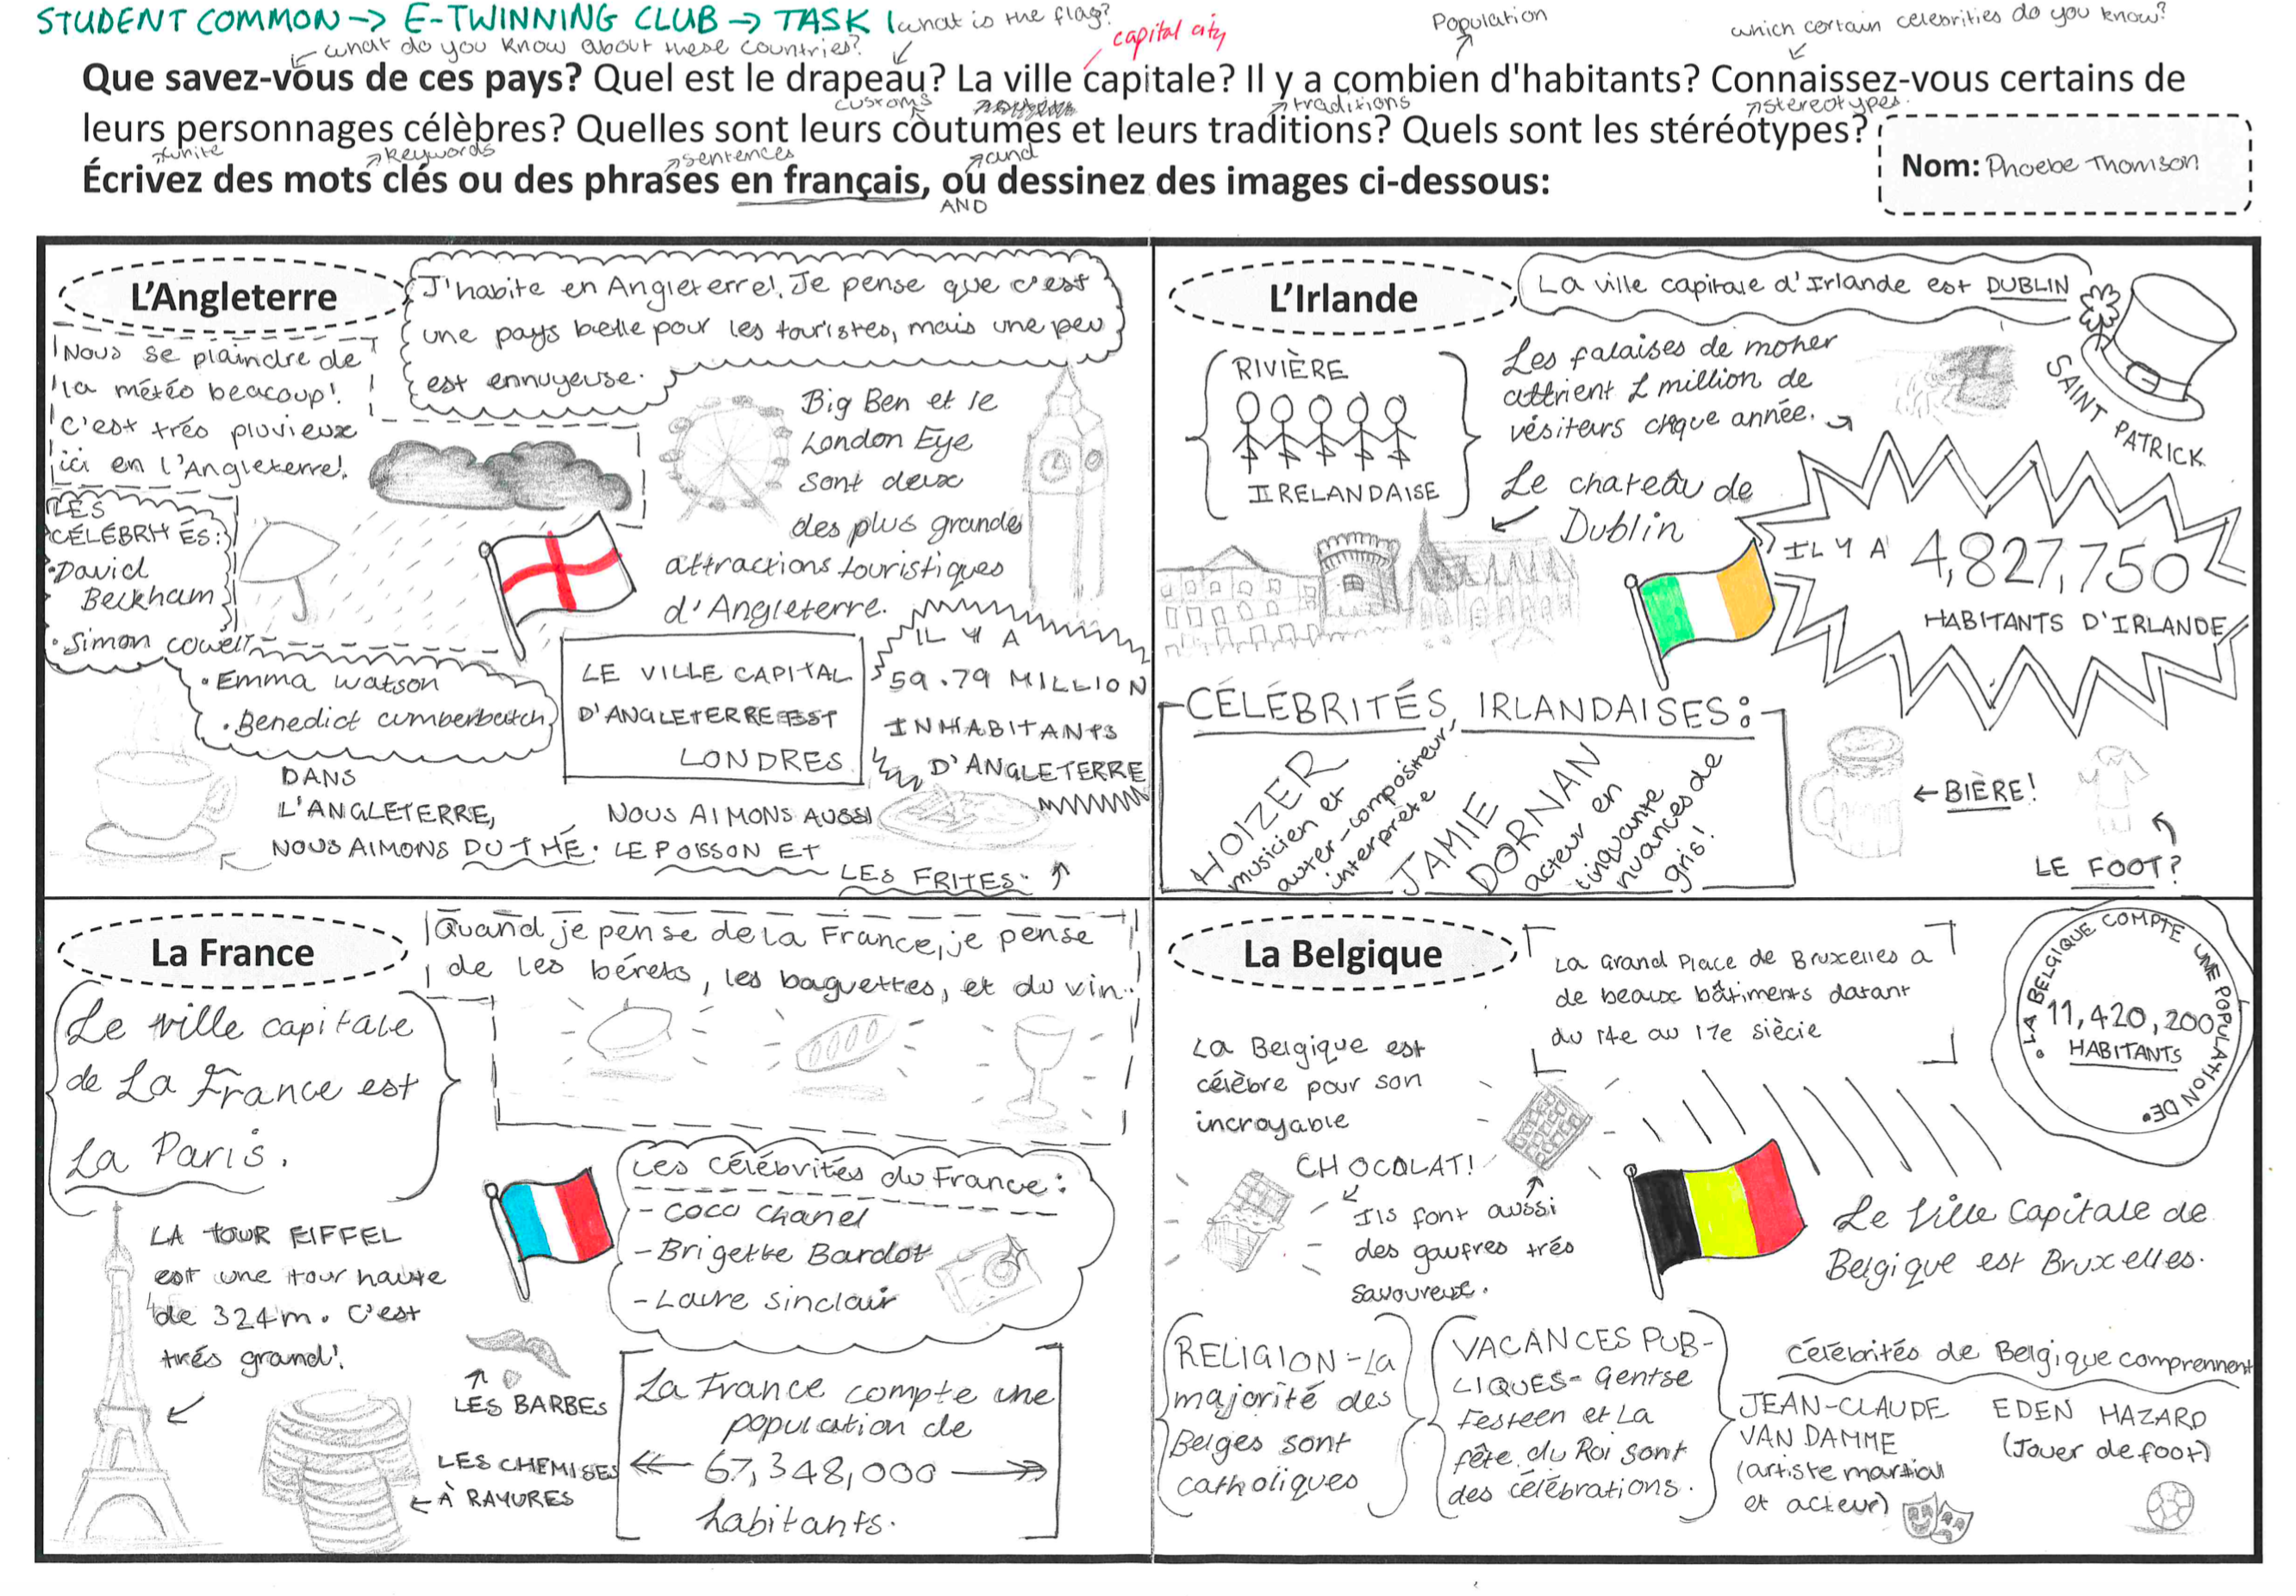 STUDENT COMMON → E-TWINNING CLUB → TASK 1
what is the flag?
capital city
Population
which certain celebrities do you know?
what do you know about these countries?
Que savez-vous de ces pays? Quel est le drapeau? La ville capitale? Il y a combien d'habitants? Connaissez-vous certains de
customs
traditions
stereotypes.
leurs personnages célèbres? Quelles sont leurs coutumes et leurs traditions? Quels sont les stéréotypes?
keywords
sentences
and
Écrivez des mots clés ou des phrases en français, où dessinez des images ci-dessous:
AND
Nom: Phoebe Thomson
L'Angleterre
J'habite en Angleterre!. Je pense que c'est
une pays belle pour les touristes, mais une peu
est ennuyeuse.
Nous se plaindre de
la météo beacoup!
C'est trés pluvieux
ici en l'Angleterre!
Big Ben et le
London Eye
sont deux
des plus grande
attractions touristiques
d'Angleterre.
LES
CÉLÉBRITÉS:
•David
Beckham
•Simon cowell
•Emma watson
•Benedict cumberbatch
LE VILLE CAPITAL
D'ANGLETERRE EST
LONDRES
IL Y A
59.79 MILLION
INHABITANTS
D'ANGLETERRE
DANS
L'ANGLETERRE,
NOUS AIMONS DU THÉ.
NOUS AIMONS AUSSI
LE POISSON ET
LES FRITES.
L'Irlande
La ville capitale d'Irlande est DUBLIN
SAINT PATRICK
RIVIÈRE
IIRELANDAISE
Les falaises de moher
attrient 1 million de
vésiteurs chque année.
Le chateâu de
Dublin
IL Y A 4,827,750
HABITANTS D'IRLANDE
CÉLÉBRITÉS IRLANDAISES:
HOIZER
musicien et
auter-compositeur-
interprète
JAMIE
DORNAN
acteur en
cinquante
nuances de
gris!
←BIÈRE!
LE FOOT?
La France
Quand je pense de la France, je pense
de les bérets, les baguettes, et du vin.
Le ville capitale
de La France est
La Paris.
LA TOUR EIFFEL
est une tour haute
de 324m. C'est
trés grand!
Les célébrités du France:
- Coco chanel
- Brigette Bardot
- Laure sinclair
LES BARBES
LES CHEMISES
← À RAYURES
La France compte une
population de
67,348,000
habitants.
La Belgique
La Grand Place de Bruxelles a
de beaux bâtiments datant
du 14e au 17e siècle
•LA BELGIQUE COMPTE UNE POPULATION DE•
11,420,200
HABITANTS
La Belgique est
célèbre pour son
incroyable
CHOCOLAT!
Ils font aussi
des gaufres trés
savoureux.
Le ville capitale de
Belgique est Bruxelles.
RELIGION - La
majorité des
Belges sont
catholiques
VACANCES PUB-
LIQUES - Gentse
Festeen et La
fête du Roi sont
des célébrations.
Célébrités de Belgique comprennent
JEAN-CLAUDE
VAN DAMME
(artiste martial
et acteur)
EDEN HAZARD
(Jouer de foot)